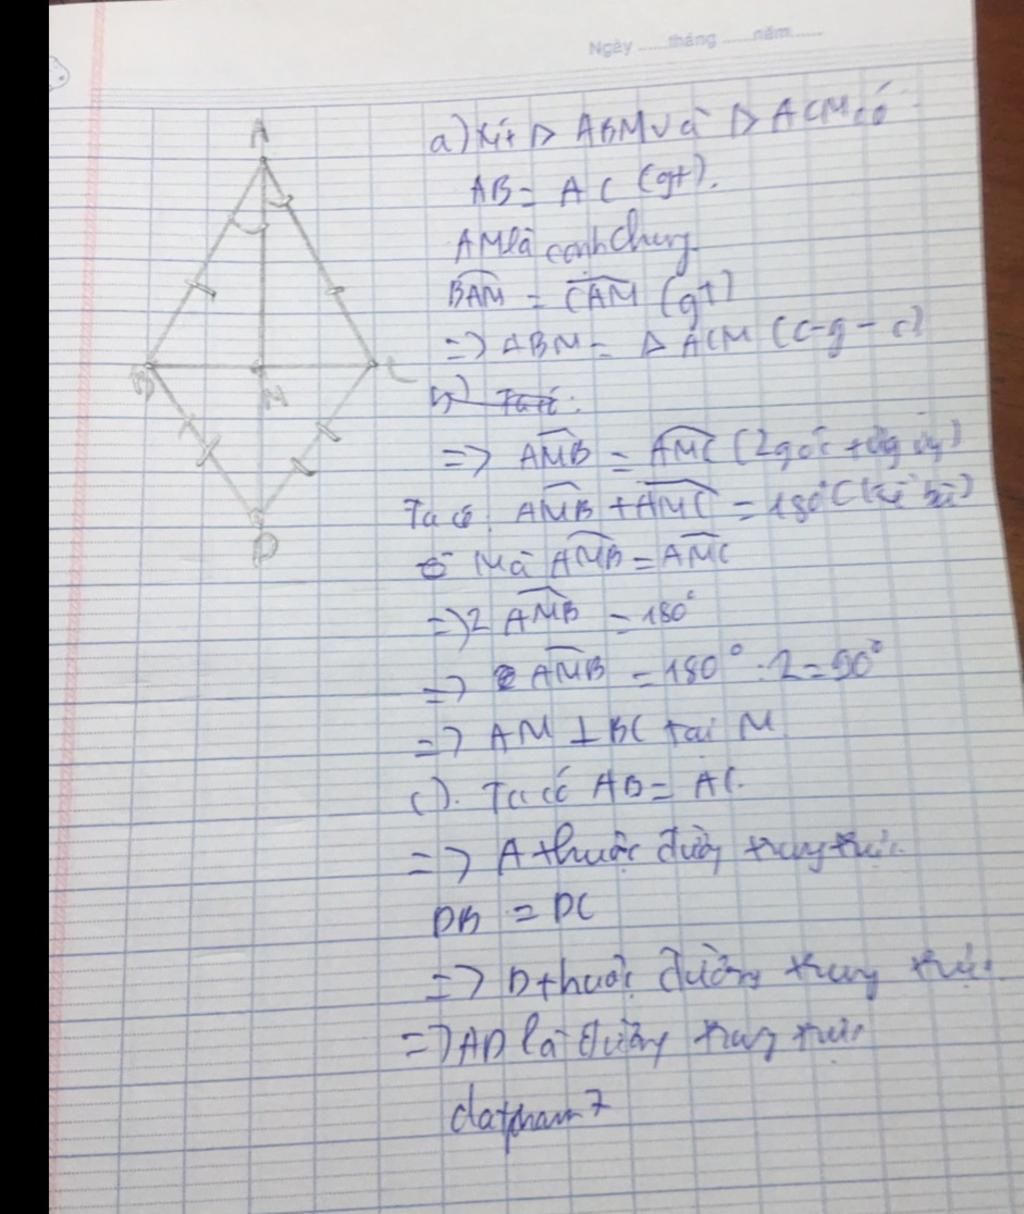 Ngày ......tháng ......năm......
A
B
M
C
D
a) Xét Δ ABM và Δ ACM có
AB = AC (gt).
AM là cạnh chung.
BAM = CAM (gt)
=> ABM = Δ ACM (c-g-c)
b) Ta có:
=> AMB = AMC (2 góc tứg ứg)
Ta có: AMB + AMC = 180° (kề bù)
Mà AMB = AMC
=> 2 AMB = 180°
=> AMB = 180° : 2 = 90°
=> AM ⊥ BC tại M
c). Ta có AB = AC.
=> A thuộc đường trung trực.
DB = DC
=> D thuộc đường trung trực.
=> AD là đường trung trực
datpham7